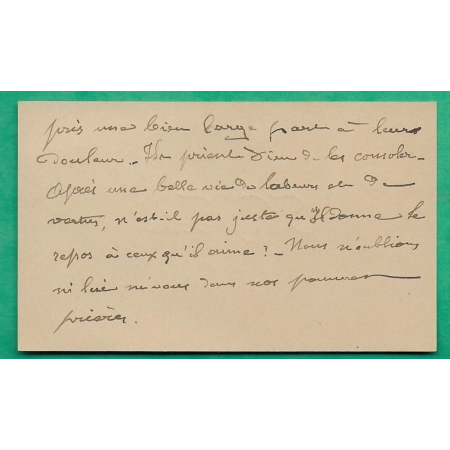 pris une bien large part à leur
douleur. Ils prient Dieu de les consoler.
Après une belle vie de labeurs et de
vertus, n'est-il pas juste qu'Il donne le
repos à ceux qu'il aime ? - Nous n'oublions
ni lui ni vous dans nos pauvres
prières.